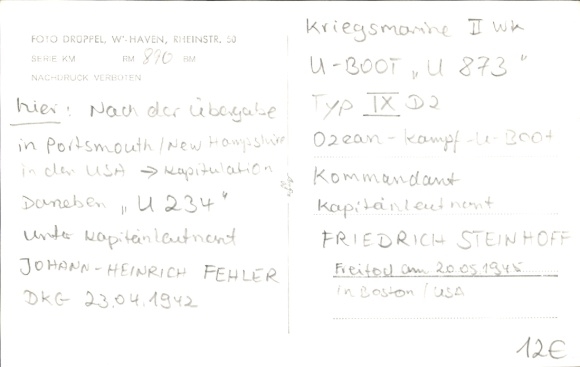 FOTO DRÜPPEL, W'HAVEN, RHEINSTR. 50
SERIE KM RM 890 BM
NACHDRUCK VERBOTEN
hier: Nach der Übergabe
in Portsmouth/New Hampshire
in den USA → Kapitulation
Daneben „U 234"
unter Kapitänleutnant
JOHANN-HEINRICH FEHLER
DKG 23.04.1942
Kriegsmarine II WK
U-BOOT „U 873"
Typ IX D2
Ozean-Kampf-U-Boot
Kommandant
Kapitänleutnant
FRIEDRICH STEINHOFF
Freitod am 20.05.1945
in Boston/USA
12€